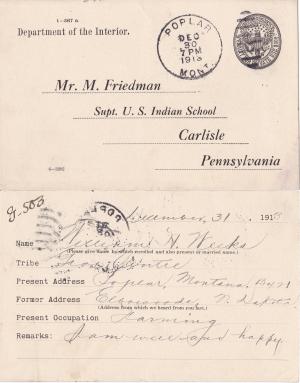 1-567 a
Department of the Interior.
POPLAR
DEC
30
7 PM
1913
MONT.
Mr. M. Friedman
Supt. U. S. Indian School
Carlisle
Pennsylvania
December, 31 191
Name William H. Weeks
(Please give name by which enrolled and also present or married name.)
Tribe Gros Ventre
Present Address Poplar, Montana, Box
Former Address Elbowoods, N. Dakota
(Address from which we heard from you last.)
Present Occupation Farming
Remarks: I am well and happy.